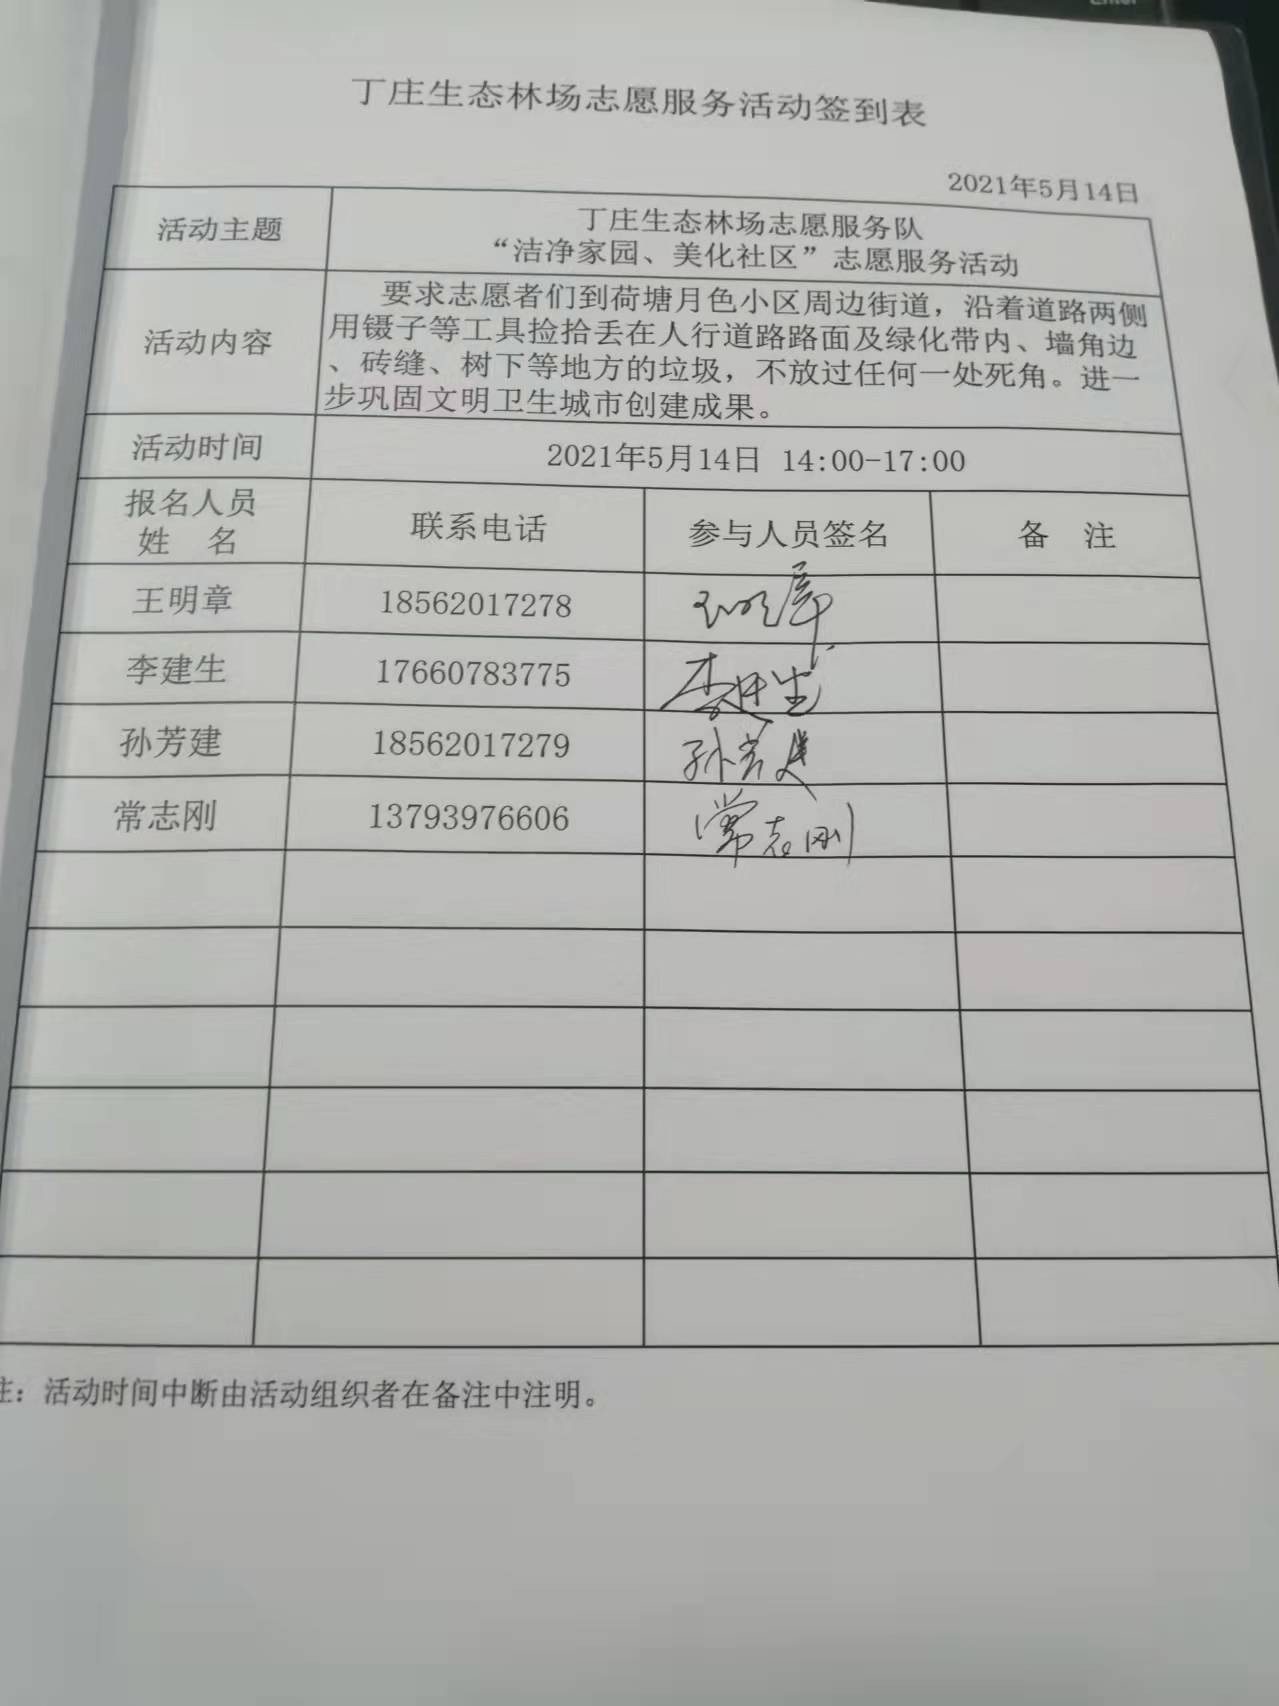 丁庄生态林场志愿服务活动签到表
2021年5月14日
活动主题
丁庄生态林场志愿服务队
“洁净家园、美化社区”志愿服务活动
活动内容
要求志愿者们到荷塘月色小区周边街道，沿着道路两侧
用镊子等工具捡拾丢在人行道路路面及绿化带内、墙角边
、砖缝、树下等地方的垃圾，不放过任何一处死角。进一
步巩固文明卫生城市创建成果。
活动时间
2021年5月14日 14:00-17:00
报名人员
姓 名
联系电话
参与人员签名
备 注
王明章 18562017278 王明章
李建生 17660783775 李建生
孙芳建 18562017279 孙芳建
常志刚 13793976606 常志刚
注：活动时间中断由活动组织者在备注中注明。